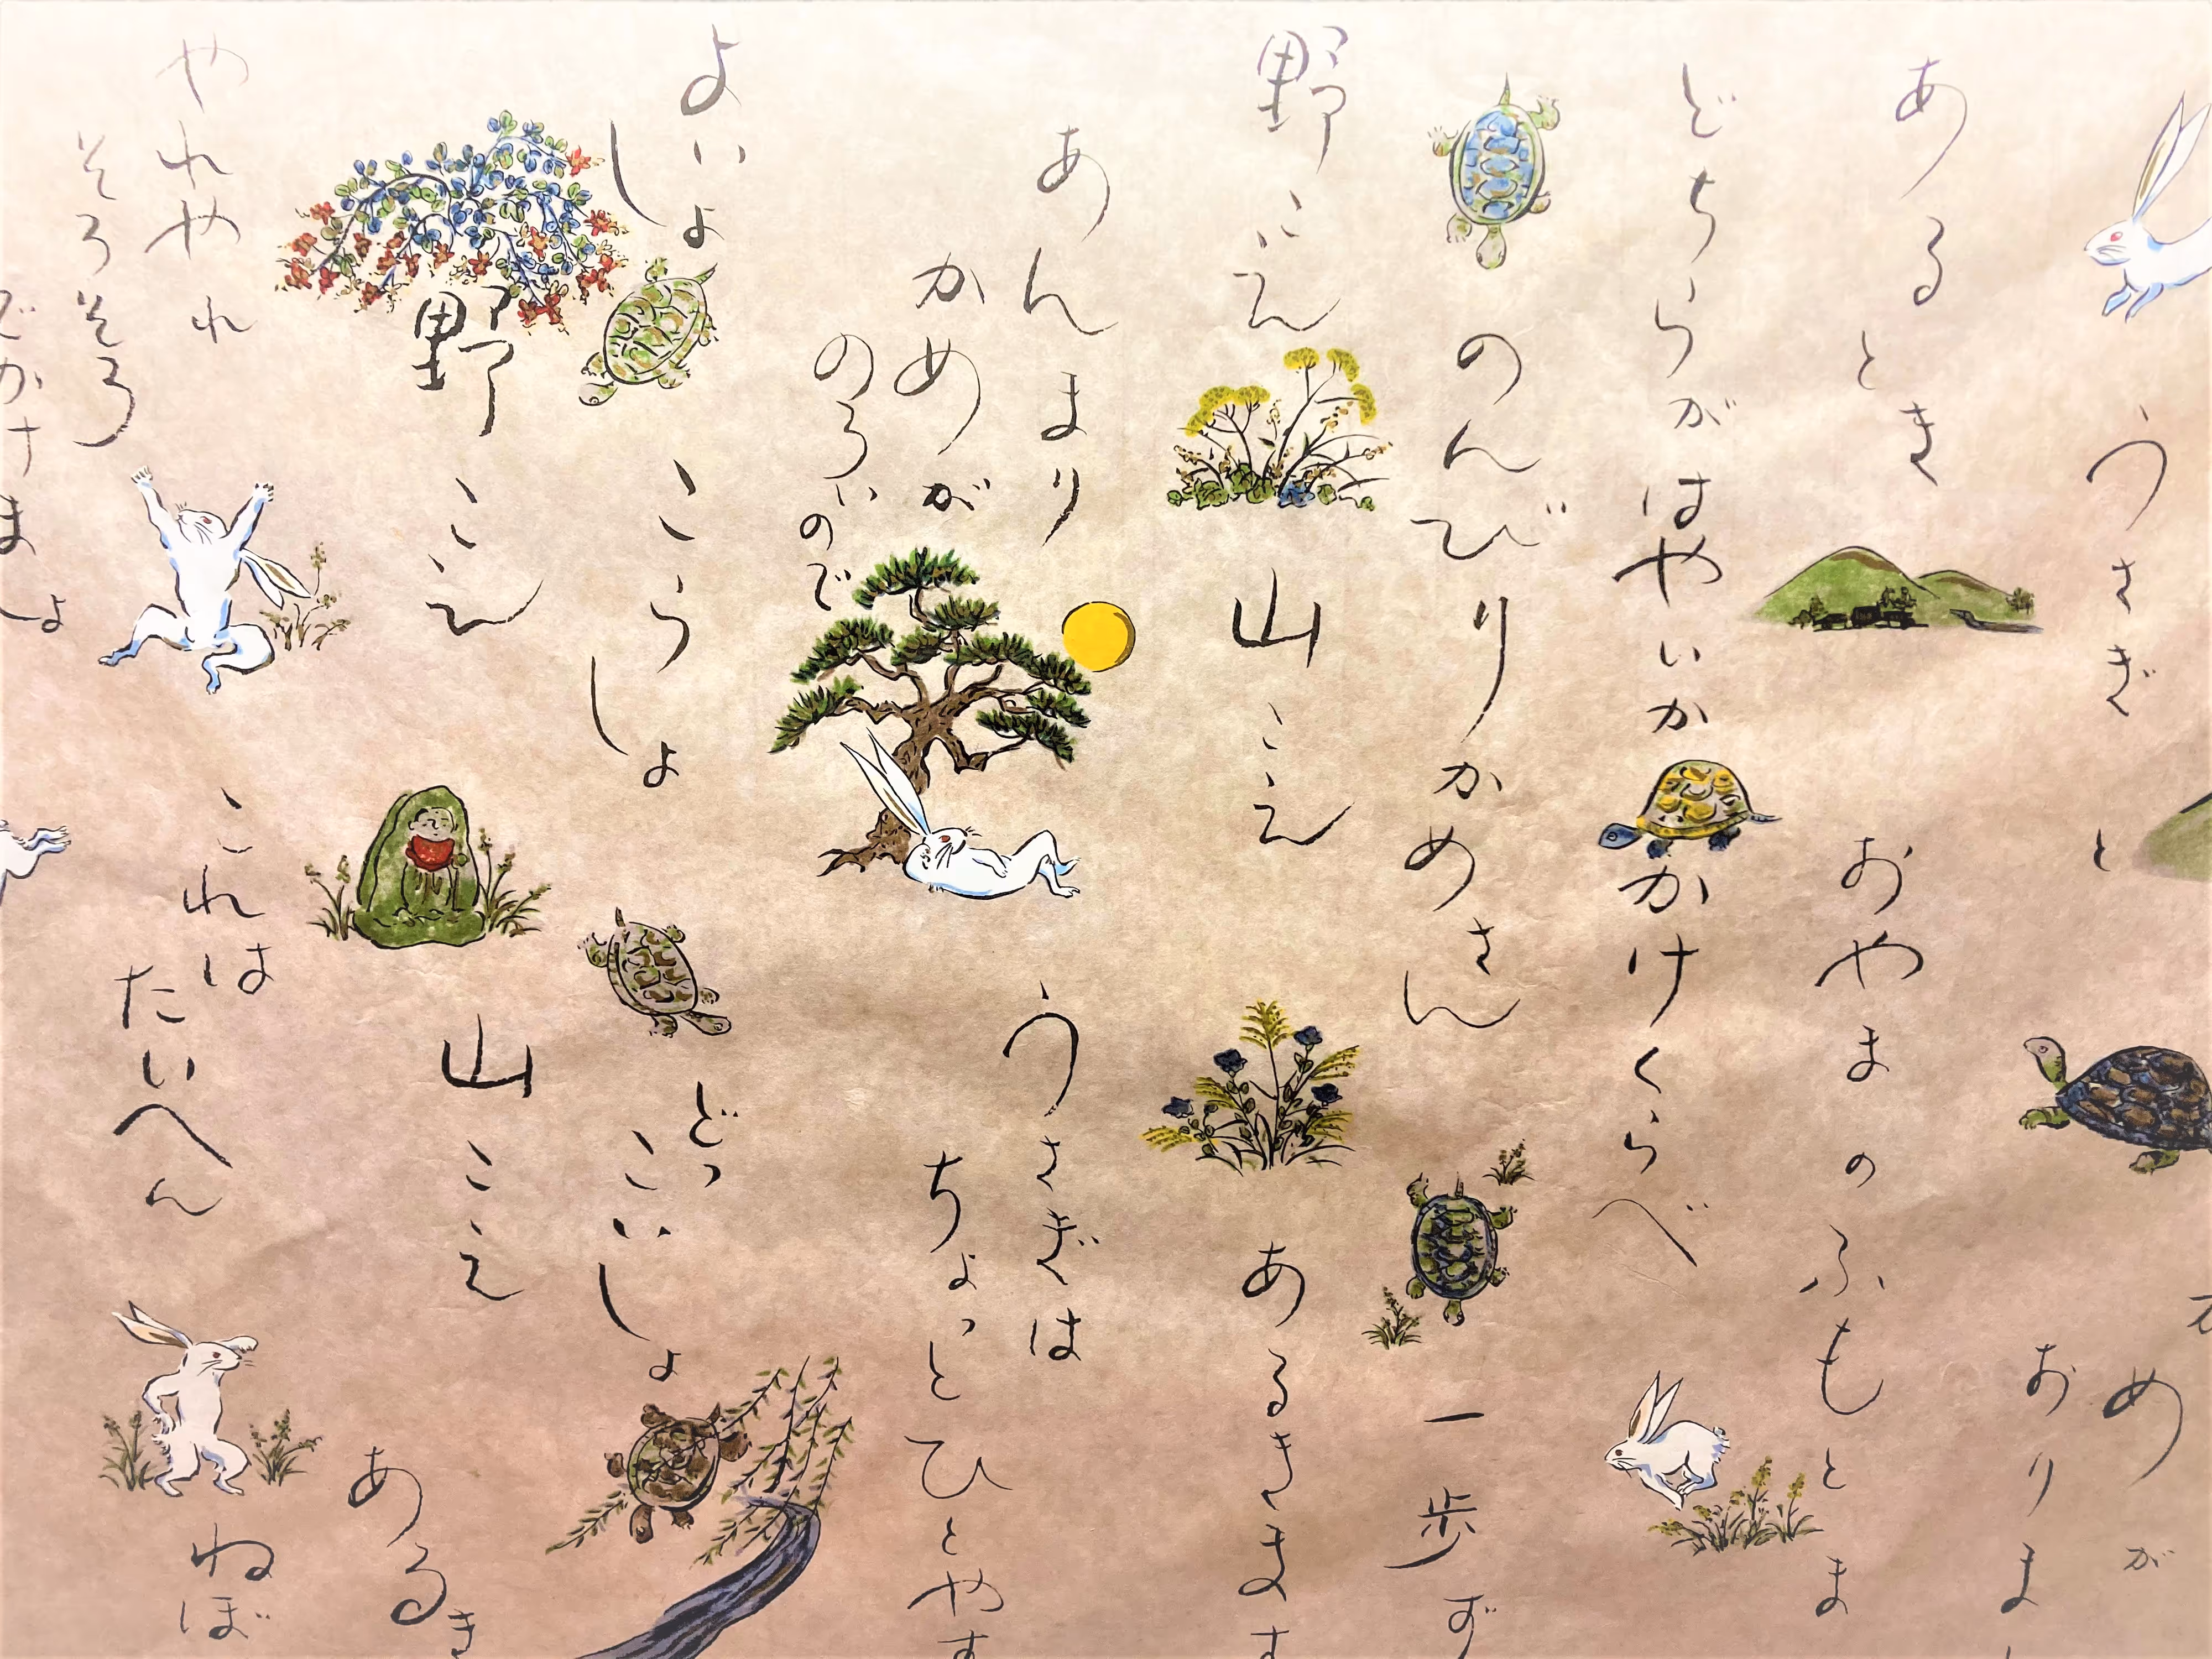 うさぎ と
めが
おりまし
あるとき
おやまのふもとま
どちらがはやいか かけくらべ
のんびりかめさん 一歩ず
野こえ 山こえ あるきます
あんまり
かめが
のろいので
うさぎは
ちょっとひとやす
よいしょ こらしょ どっこいしょ
野こえ 山こえ あるき
やれやれ
そろそろ
でかけましょ
これは
たいへん
ねぼ